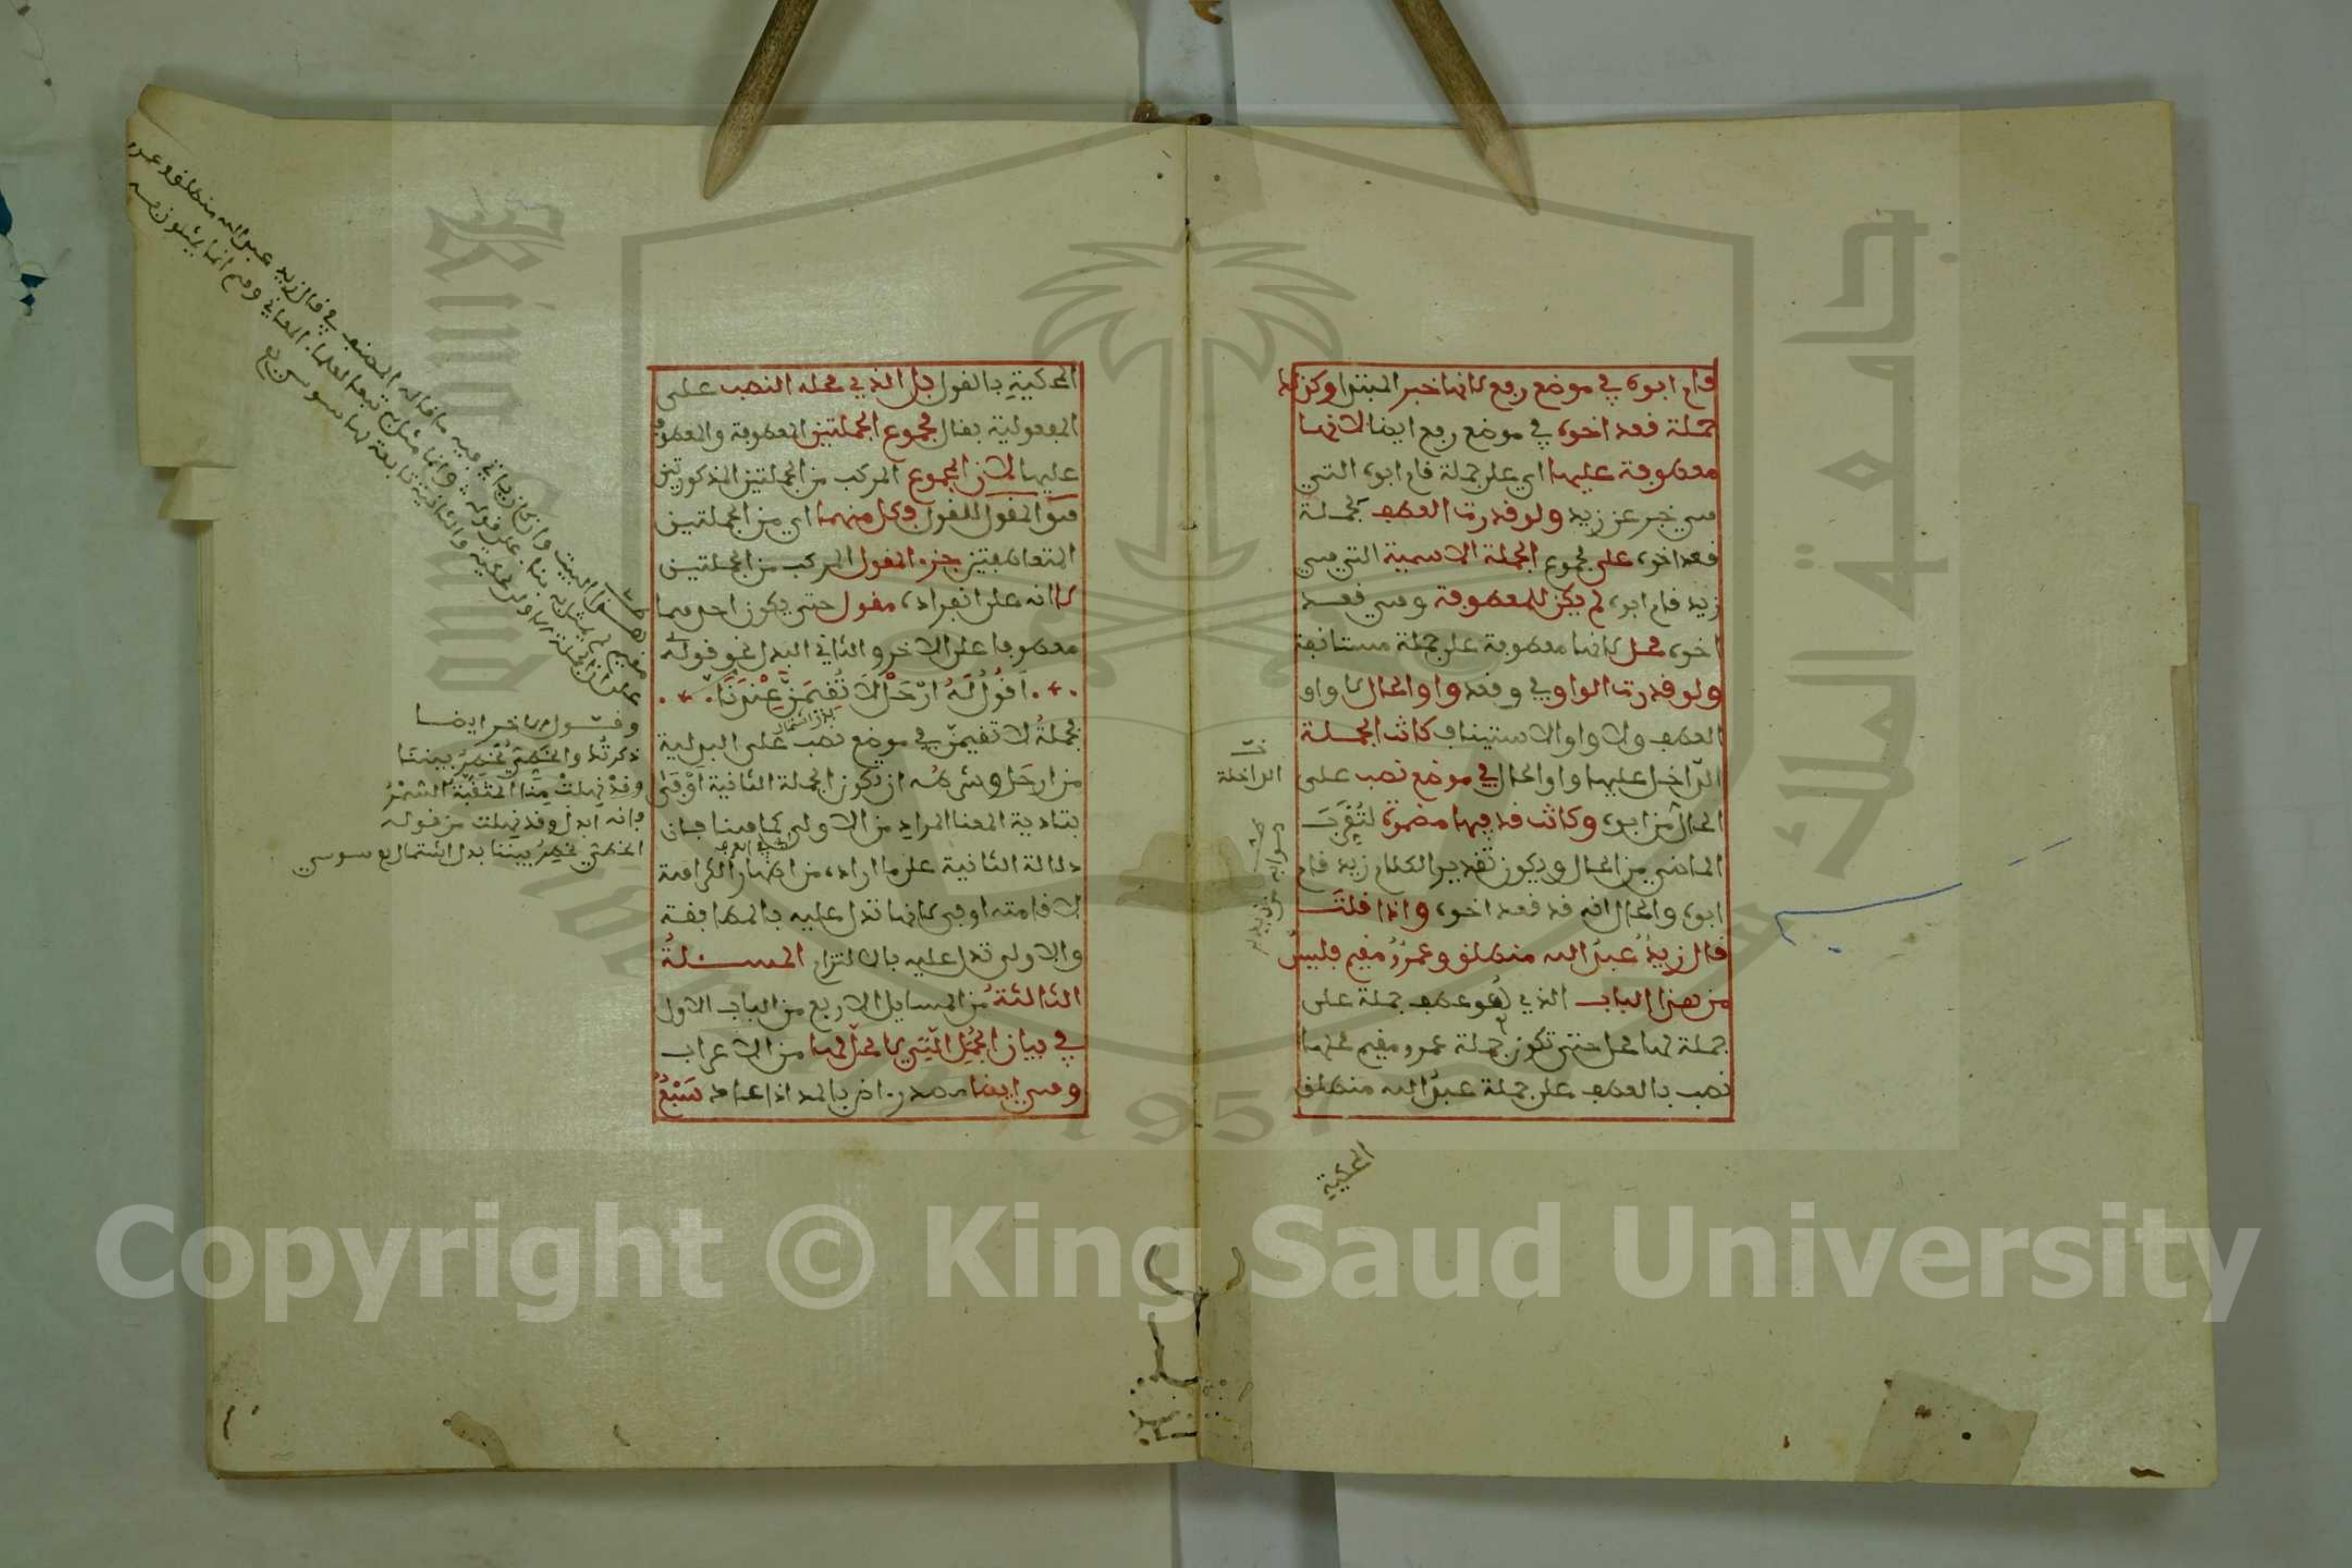 قام ابوه في موضع رفع لانها خبر المبتدا وكذلك
جملة قعد اخوه في موضع رفع ايضا لانها
معطوفة عليها اي على جملة قام ابوه التي
هي خبر عن زيد ولو قدرت العطف لجملة
قعد اخوه على مجموع الجملة الاسمية التي هي
زيد قام ابوه لم يكن للمعطوفة وهي قعد
اخوه محل لانها معطوفة على جملة مستانفة
ولو قدرت الواو في وقعد واو الحال لا واو
العطف ولا واو الاستيناف كانت الجملة
الداخل عليها واو الحال في موضع نصب على
الحال من ابوه وكانت قد فيها مضمرة لتُقَرِّبَ
الماضي من الحال ويكون تقدير الكلام زيد قام
ابوه والحال انه قد قعد اخوه واذا قلتَ
قال زيدٌ عبدُ الله منطلق وعمرٌو مقيم فليس
من هذا الباب الذي هو عطف جملة على
جملة لها محل حتى تكون جملة عمرو مقيم محلها
نصب بالعطف على جملة عبدُ الله منطلق
الداخلة
المحكية
المحكيةِ بالقول بل الذي محله النصب على
المفعولية بقال مجموع الجملتين المعطوفة والمعطوف
عليها لان المجموع المركب من الجملتين المذكورتين
هو المقول للقول وكل منهما اي من الجملتين
المتعاطفتين جزء المقول المركب من الجملتين
لا انه على انفراده مقول حتى يكون احدهما
معطوفا على الاخر والثاني البدل نحو قوله
اَقُولُ لَهُ ارْحَلْ لَا تُقِيمَنَّ عِنْدَنَا
فجملةُ لا تقيمنّ في موضع نصب على البدلية
بدل اشتمال
من ارحَل وشرطُه ان تكون الجملة الثانية اَوْفَىٰ
بتادية المعنا المراد من الاولى كما هنا فان
دلالة الثانية على ما اراده من اظهار الكراهة
لاقامته اوفى لانها تدل عليه بالمطابقة
والاولى تدل عليه بالالتزام المسئلةُ
الثالثةُ من المسايل الاربع من الباب الاول
في بيان الجُمَلِ الّتِي لا محلّ لها من الاعراب
وهي ايضا مصدر اض بالمد اذا عاد سَبْعٌ
وقول الاخر ايضا
ذكرتُك والخَطّيُّ يَخْطِرُ بيننا
وقدْ نهلتْ مِنّا المثقّفة السُّمْرُ
فانه ابدل وقد نهلت من قوله
الخطي يخطِرُ بيننا بدل اشتمال
Copyright © King Saud University
1957